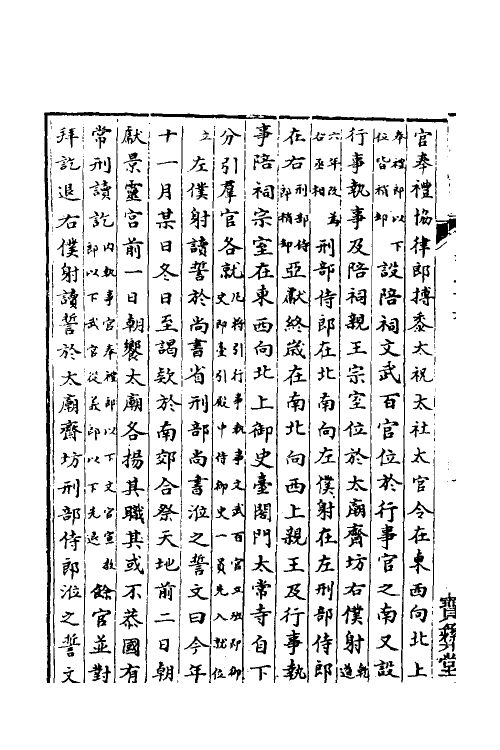 官奉禮協律郎搏黍太祝太社太官令在東西向北上
奉禮郎以下位皆稍却設陪祠文武百官位於行事官之南又設
行事執事及陪祠親王宗室位於太廟齋坊右僕射乾道
六年改為右丞相刑部侍郎在北南向左僕射在左刑部侍郎
在右刑部侍郎稍却亞獻終獻在南北向西上親王及行事執
事陪祠宗室在東西向北上御史臺閤門太常寺自下
分引羣官各就凡將引行事執事文武百官文班即御史即臺引殿中侍御史一員先入就位
立左僕射讀誓於尚書省刑部尚書涖之誓文曰今年
十一月某日冬日至謁款於南郊合祭天地前二日朝
獻景靈宮前一日朝饗太廟各揚其職其或不恭國有
常刑讀訖内執事官奉禮郎以下文官宣教郎以下武官從義郎以下先退餘官並對
拜訖退右僕射讀誓於太廟齋坊刑部侍郎涖之誓文
寶彝堂